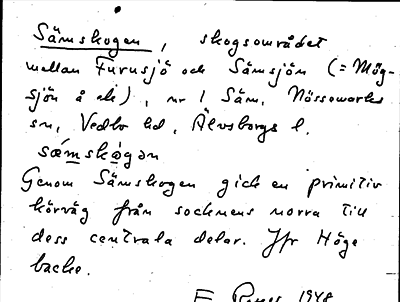 Sämskogen, skogsområdet
mellan Furusjö och Sämsjön (= Mög-
sjön å ek), nr 1 Säm, Nössemarks
sn, Vedbo hd, Älvsborgs l.
sæ̀mskógən
Genom Sämskogen gick en primitiv
körväg från socknens norra till
dess centrala delar. Jfr Höge
backe.
1948